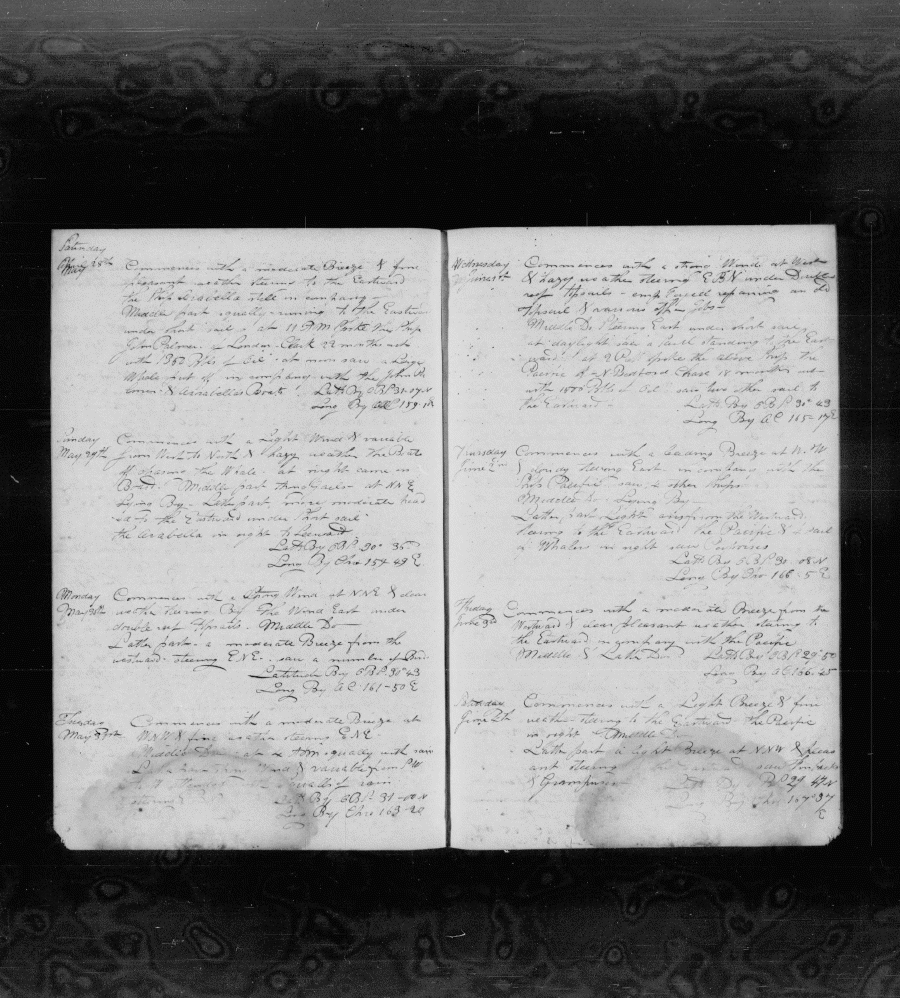 Saturday
May 28th Commences with a moderate Breeze & fine
pleasant weather steering to the Eastward
the Ship Arabella still in company
Middle part squally running to the Eastward
under short sail & at 11 A M spoke the Ship
John Palmer of London Clark 22 months out
with 1350 Bbls of Oil at noon saw a large
Whale put off in company with the John Pal
mer & Arabellas Boats Latt By OBS 31-17 N
Long By 159
Sunday
May 29th Commences with a Light Wind & variable
from West to North & hazy weather the Boats
off chasing the Whale at night came on
Board Middle part strong Gales at NNE
Lying By Latter part more moderate head
ed to the Eastward under short sail
the Arabella in sight to Leeward
Latt By OBS 30° 36
Long By Chro 159 49 E
Monday
May 30th Commences with a Strong Wind at NNE & clear
weather steering By the Wind East under
double reef topsails Middle Do
Latter part a moderate Breeze from the
westward steering ENE saw a number of
Latitude By OBS 30° 43
Long By 161-50 E
Tuesday
May 31st Commences with a moderate Breeze at
WNW & fine weather steering ENE
Middle Do at 2 AM squally with rain
Latter Wind & variable from SW
Squalls of rain
steering Latt By OBS 31-
Long By Chro 163-20
Wednesday
June 1st Commences with a strong Winds at West
& hazy weather steering EBN under Double
reef topsails emp repairing an old
topsail & various other jobs
Middle Do Steering East under short sail
at daylight saw a sail standing to the East
ward at 2 spoke the above Ship the
Pacific of N Bedford Chase 18 months out
with 1800 Bbls Oil saw two other sail to
the Eastward Latt By OBS 30° 43
Long By 165-17 E
Thursday
June 2nd Commences with a leading Breeze at N.W
& cloudy steering East in company with the
Ship Pacific saw 2 other ships
Middle Do Lying By
Latter part Light from the Westward
steering to the Eastward the Pacific & sail
of Whalers in sight saw Porpoises
Latt By OBS 30 08 N
Long By Chro 166-5 E
Friday
June 3d Commences with a moderate Breeze from the
Westward & clear pleasant weather steering to
the Eastward in company with the Pacific
Middle & Latter Do Latt By OBS 29° 50
Long By 166-45
Saturday
June 4th Commences with a Light Breeze & fine
weather steering to the Eastward the Pacific
in sight Middle Do
Latter part a light Breeze at NNW & pleas
ant steering saw
& Grampuses 29 47 N
Long By Chro 167° 37
E